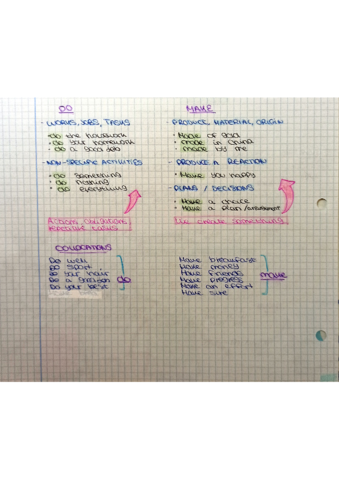 DO
· WORKS, JOBS, TASKS
· do the housework
· do your homework
· do a good job
· NON-SPECIFIC ACTIVITIES
· do something
· do nothing
· do everything
Actions, obligations,
repetitive tasks
MAKE
· PRODUCE MATERIAL, ORIGIN
· Made of gold
· made in China
· made by me
· PRODUCE A REACTION
· Make you happy
· PLANS / DECISIONS
· Make a choice
· Make a plan /
We create something
COLLOCATIONS
Do well
Do sport
Do your hair
Do a
Do your best
do
Make breakfast
Make money
Make friends
Make progress
Make an effort
Make sure
make